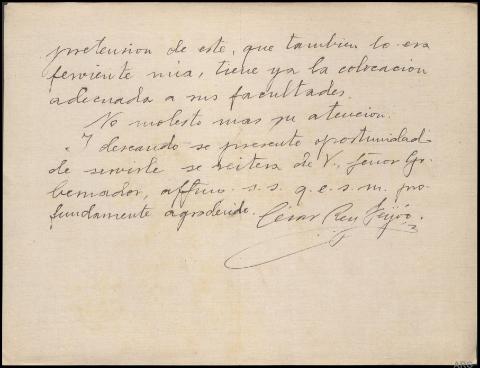 pretension de este, que tambien lo era
ferviente mia, tiene ya la colocacion
adecuada a sus facultades.
No molesto mas su atencion.
Y deseando se presente oportunidad
de servirle se reitera de V., señor Go-
bernador, affmo. s. s. q. e. s. m. pro-
fundamente agradecido. César Rey Feijóo.
ARG